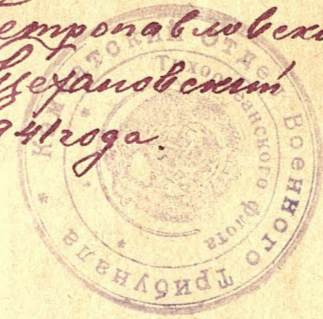 етропавловски
Цехановский
941 года.
Камчатский Отдел Военного Трибунала
Тихоокеанского флота